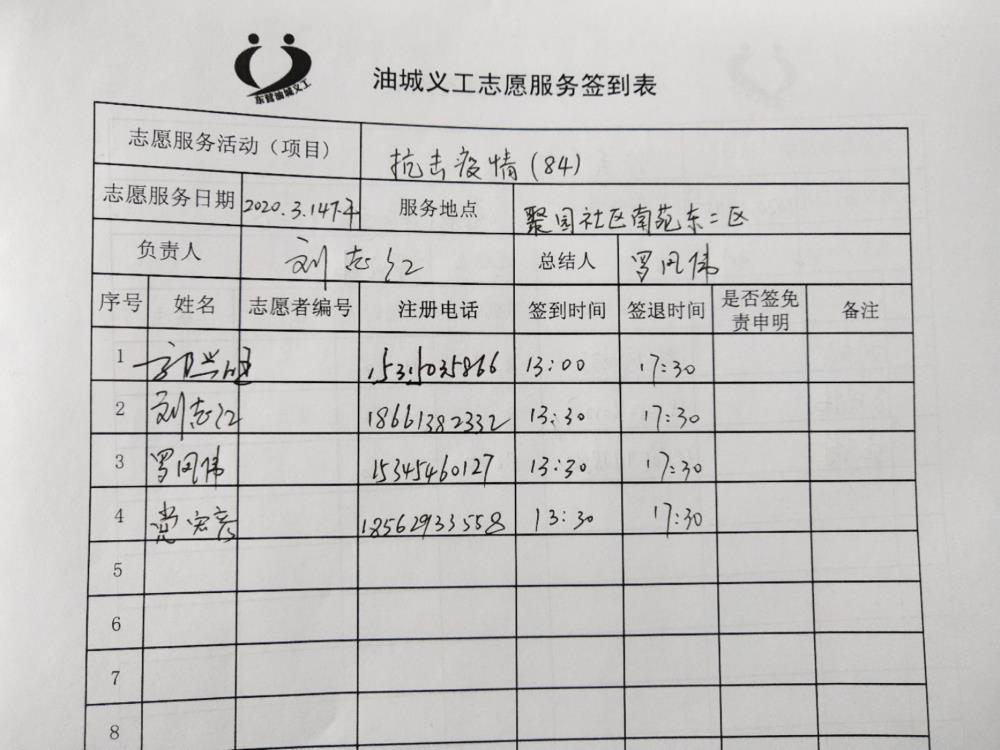 东营油城义工
油城义工志愿服务签到表
志愿服务活动（项目） 抗击疫情(84)
志愿服务日期 2020.3.14下午 服务地点 聚园社区南苑东二区
负责人 刘志江 总结人 罗凤伟
序号 姓名 志愿者编号 注册电话 签到时间 签退时间 是否签免责申明 备注
1 15315035866 13:00 17:30
2 刘志江 18661382332 13:30 17:30
3 罗凤伟 15345460127 13:30 17:30
4 党宏彦 18562933558 13:30 17:30
5
6
7
8